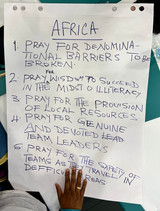 AFRICA
1. PRAY FOR DENOMINA-
TIONAL BARRIERS TO BE
BROKEN.
2. PRAY FOR WISDOM TO SUCCEED
IN THE MIDST O ILLITERACY
3 PRAY FOR THE PROVISION
OF LOCAL RESOURCES.
4 PRAY FOR GENUINE
AND DEVOTED LEAD
TEAM LEADERS
5 PRAY FOR THE SAFETY OF
TEAMS AS TO TRAVEL IN
DEFFICULT AREAS